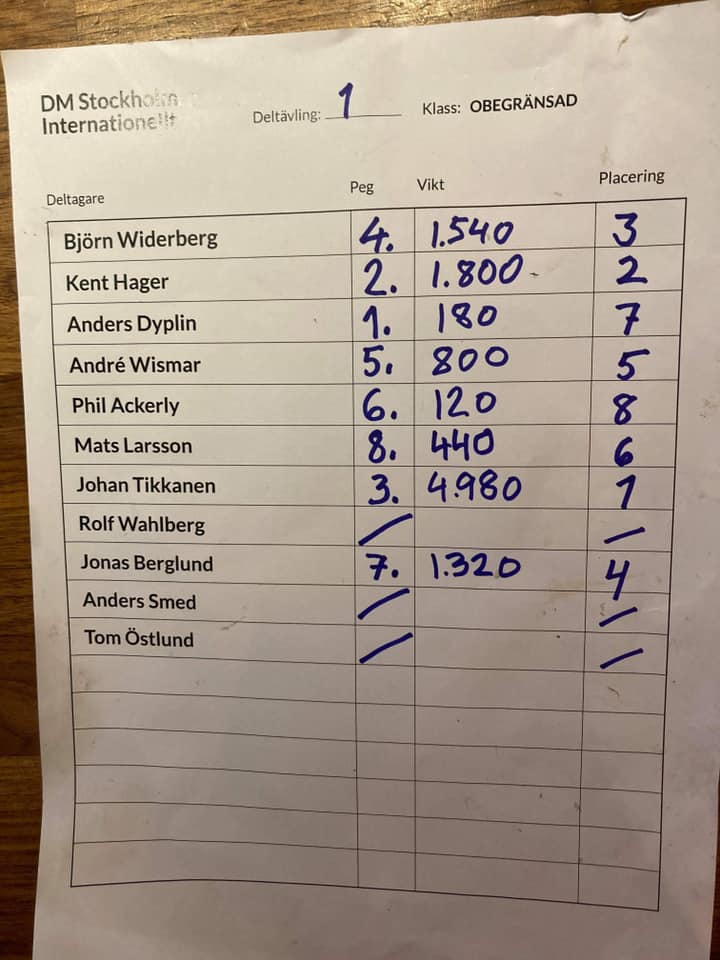 DM Stockholm
Internationellt
Deltävling: 1 Klass: OBEGRÄNSAD
Deltagare Peg Vikt Placering
Björn Widerberg 4. 1.540 3
Kent Hager 2. 1.800 2
Anders Dyplin 1. 180 7
André Wismar 5. 800 5
Phil Ackerly 6. 120 8
Mats Larsson 8. 440 6
Johan Tikkanen 3. 4.980 1
Rolf Wahlberg / /
Jonas Berglund 7. 1.320 4
Anders Smed / /
Tom Östlund / /